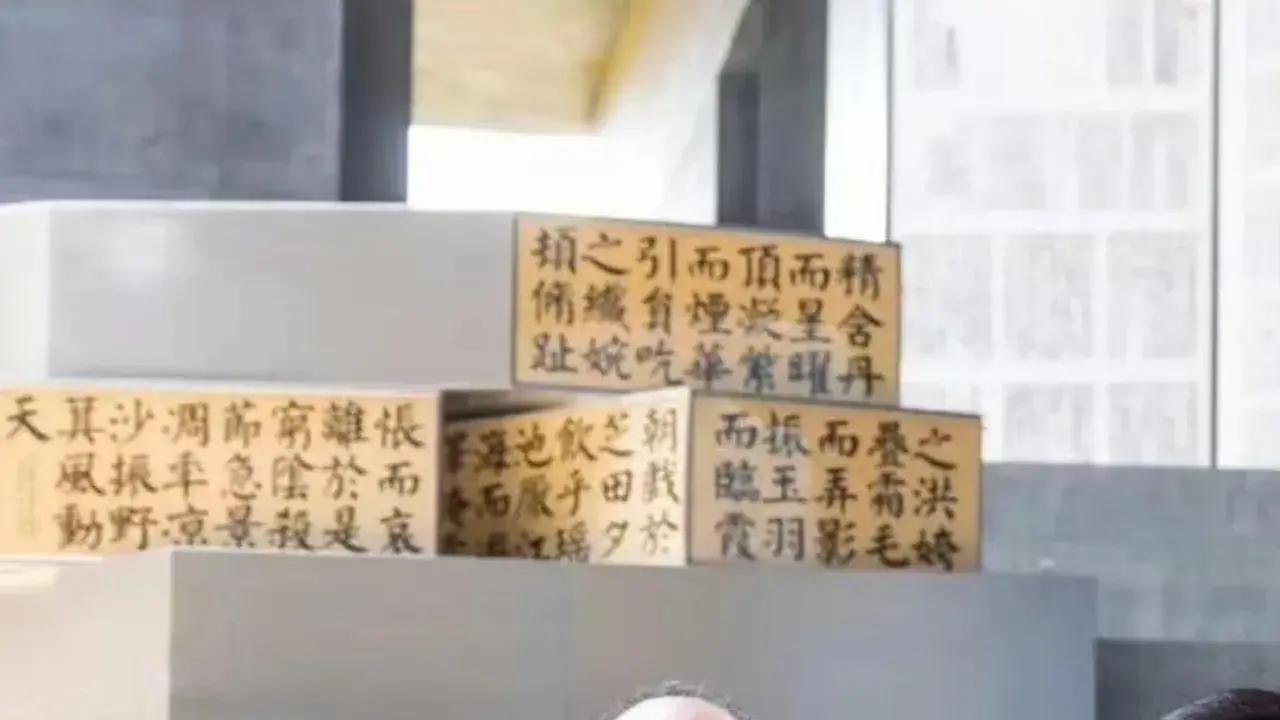 精含丹
而星曜
頂凝紫
而煙華
引員吭
之纖婉
頓脩趾
之洪姱
疊霜毛
而弄影
振玉羽
而臨霞
朝戲於
芝田夕
飲乎瑤
池厭江
海而
悵而哀
離於是
窮陰殺
節急景
凋年涼
沙振野
箕風動
天